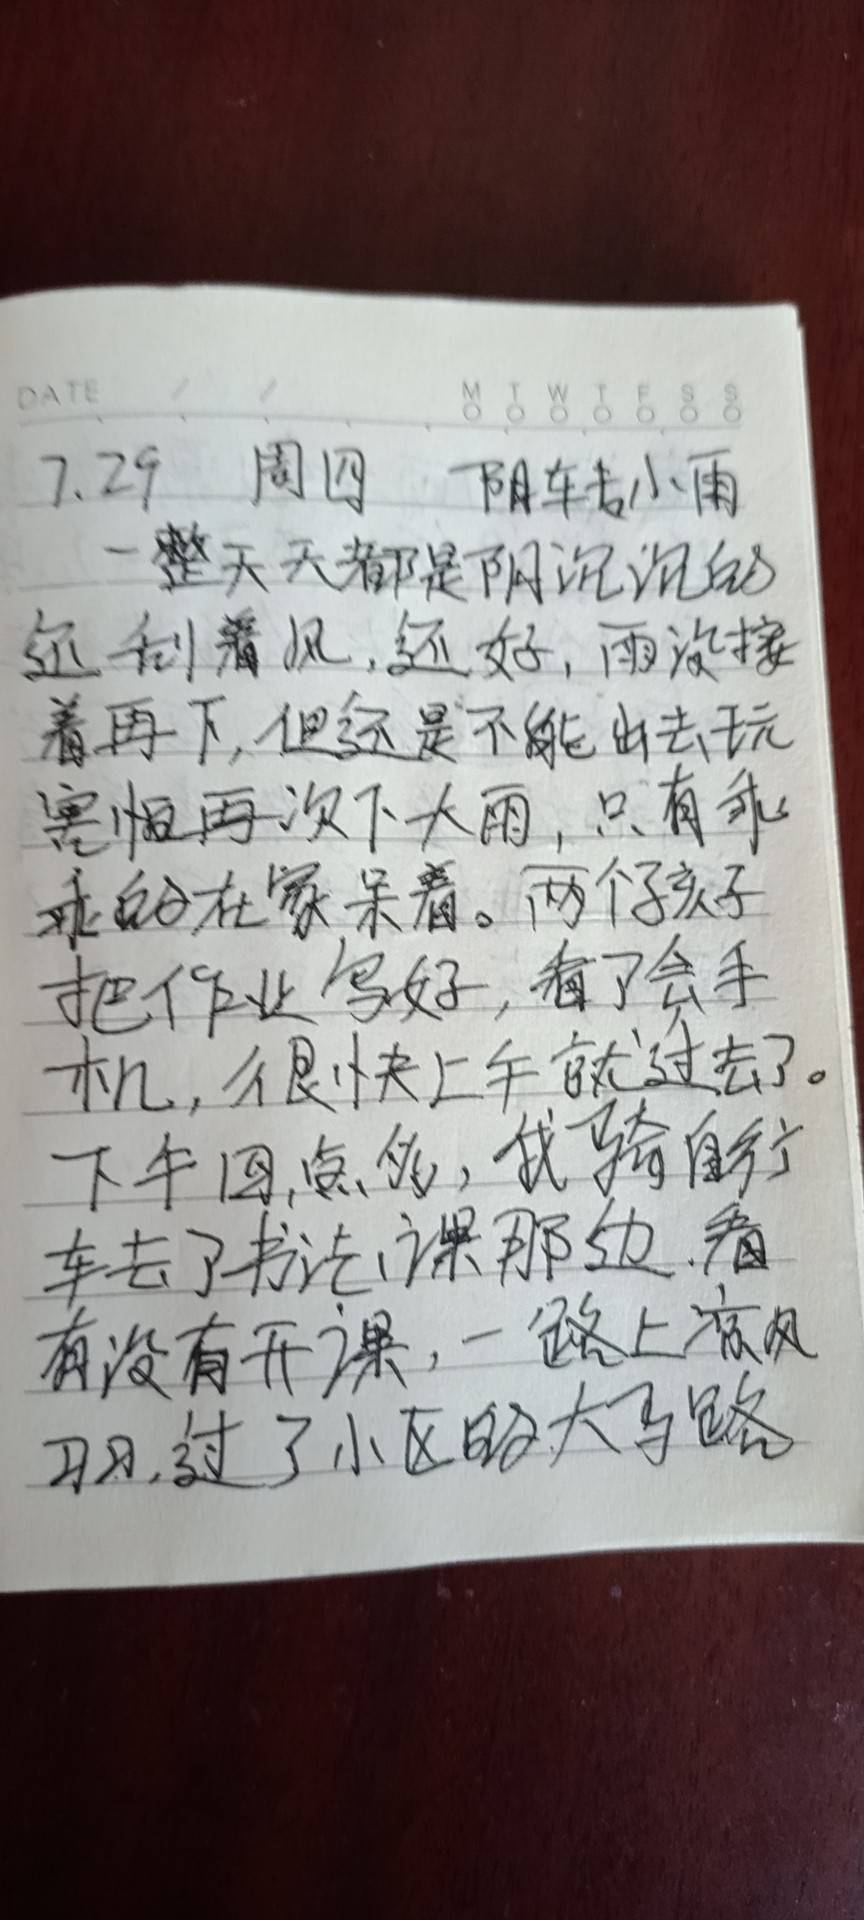 DATE / / M T W T F S S
7.29 周四 阴转小雨
一整天天都是阴沉沉的
还刮着风,还好,雨没接
着再下,但还是不能出去玩
害怕再次下大雨,只有乖
乖的在家呆着。两个孩子
把作业写好,看了会手
机,很快上午就过去了。
下午四点多,我骑自行
车去了书法课那边,看
有没有开课,一路上凉风
习习,过了小区的大马路